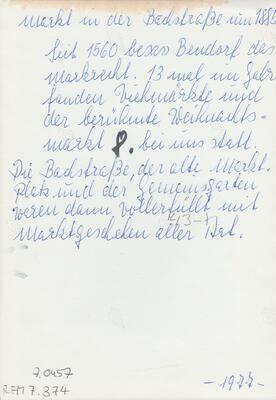 Markt in der Bachstraße um 1885
Seit 1560 besass Bendorf das
Marktrecht. 13 mal im Jahr
fanden Viehmärkte und
der berühmte Weihnachts-
markt 8. bei uns statt.
Die Bachstraße, der alte Markt-
Platz und der Gemeinsgarten
waren dann, vollerfüllt mit
Marktgeschehen aller Art.
43-7
7.0457
REM 7.374
- 1977 -